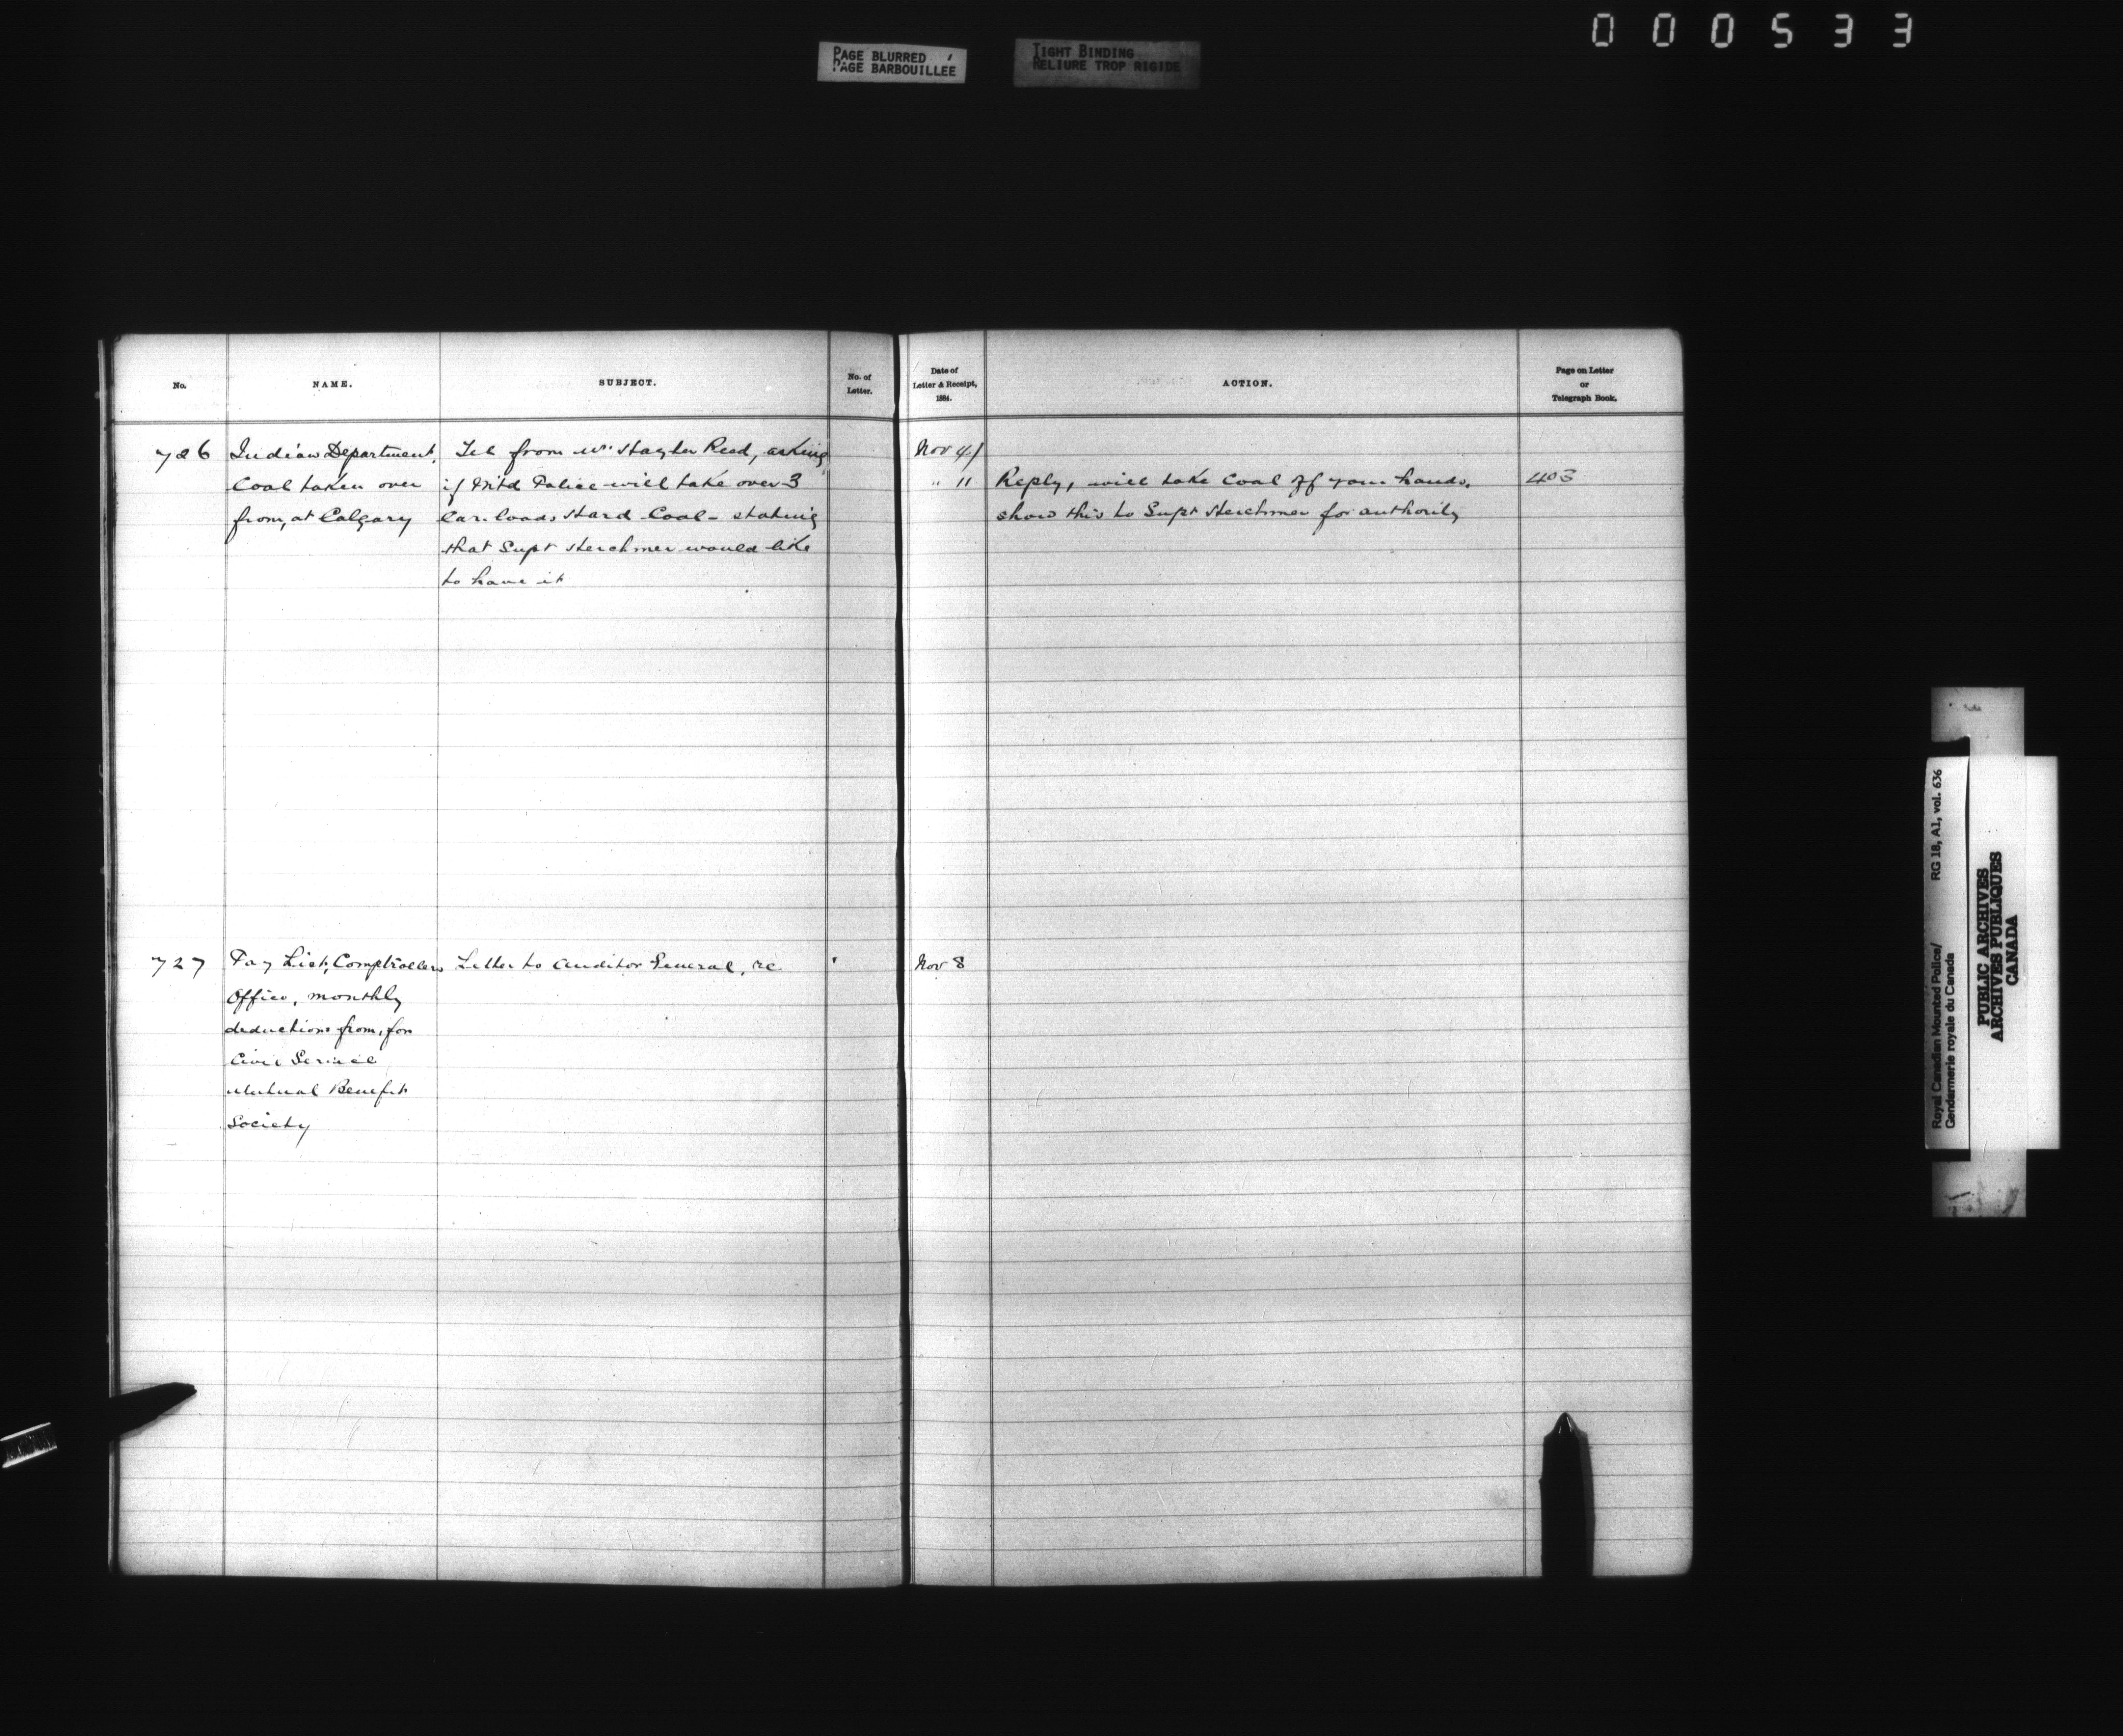 000533
PAGE BLURRED
PAGE BARBOUILLEE
TIGHT BINDING
RELIURE TROP RIGIDE
No.
NAME.
SUBJECT.
No. of
Letter.
Date of
Letter & Receipt,
1884.
ACTION.
Page on Letter
or
Telegraph Book.
726
Indian Department,
Coal taken over
from, at Calgary
Tel from Mr Hayter Reed, asking
if M'td Police will take over 3
Car loads Hard Coal - stating
that Supt Herchmer would like
to have it
Nov 4/
" 11
Reply, will take Coal off your hands,
show this to Supt Herchmer for authority
403
727
Pay List, Comptrollers
Office, monthly
deductions from, for
Civil Service
Mutual Benefit
Society
Letter to Auditor General, re
Nov 8
Royal Canadian Mounted Police/
Gendarmerie royale du Canada
RG 18, A1, vol. 636
PUBLIC ARCHIVES
ARCHIVES PUBLIQUES
CANADA